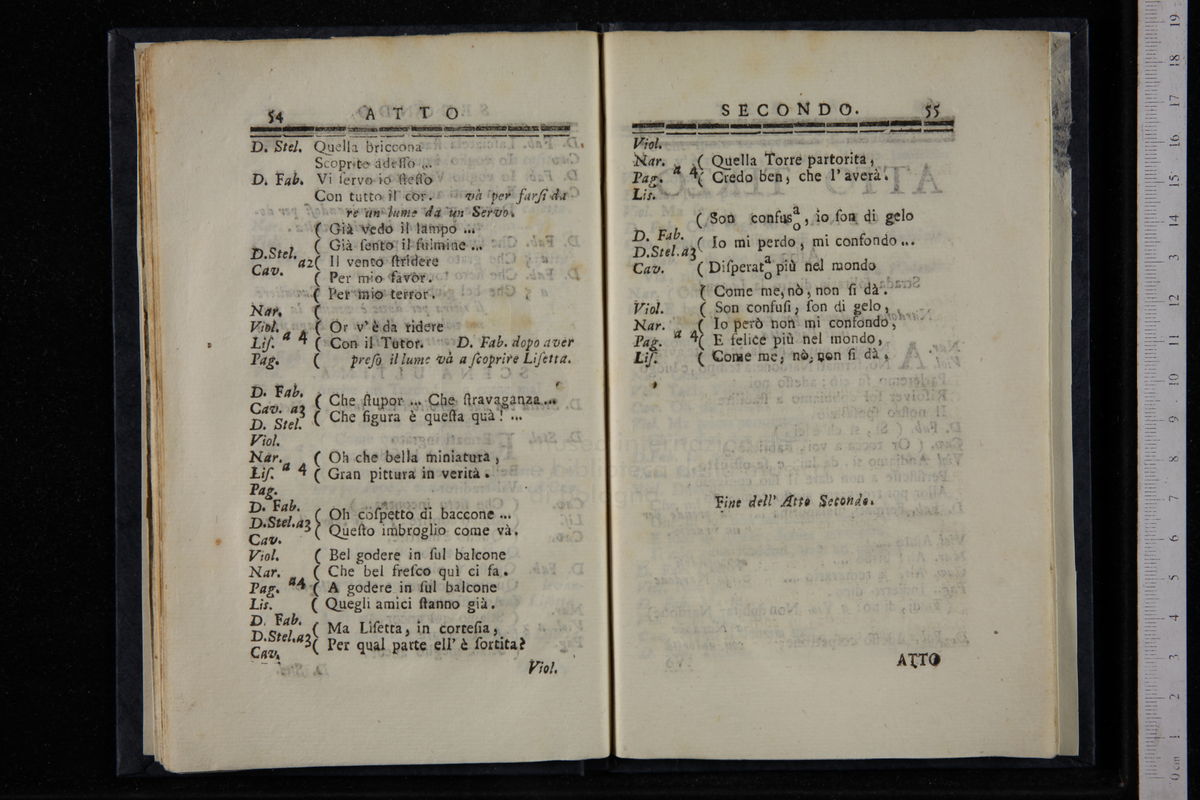 54 ATTO
D. Stel. Quella briccona
Scoprite adeſſo ...
D. Fab. Vi ſervo io ſteſſo
Con tutto il cor. và per farſi da
re un lume da un Servo.
( Già vedo il lampo ...
( Già ſento il fulmine ...
D.Stel. a2 ( Il vento ſtridere
Cav. ( Per mio favor.
( Per mio terror.
Nar. (
Viol. ( Or v'è da ridere
Liſ. a 4 ( Con il Tutor. D. Fab. dopo aver
Pag. ( preſo il lume và a ſcoprire Liſetta.
D. Fab.
Cav. a3 ( Che ſtupor ... Che ſtravaganza ...
D. Stel. ( Che figura è queſta quà! ...
Viol.
Nar. ( Oh che bella miniatura,
Liſ. a 4 ( Gran pittura in verità.
Pag.
D. Fab.
D.Stel.a3 ( Oh coſpetto di baccone ...
Cav. ( Queſto imbroglio come và.
Viol. ( Bel godere in ſul balcone
Nar. ( Che bel freſco quì ci fa.
Pag. a4 ( A godere in ſul balcone
Lis. ( Quegli amici ſtanno già.
D. Fab.
D.Stel.a3 ( Ma Liſetta, in corteſia,
Cav. ( Per qual parte ell' è ſortita?
Viol.
SECONDO. 55
Viol.
Nar. ( Quella Torre partorita,
Pag. a 4 ( Credo ben, che l'averà.
Lis.
( Son confusa/o, io ſon di gelo
D. Fab.
D.Stel.a3 ( Io mi perdo, mi confondo ...
Cav. ( Diſperata/o più nel mondo
( Come me, nò, non ſi dà.
Viol. ( Son confuſi, ſon di gelo,
Nar. ( Io però non mi confondo,
Pag. a 4 ( E felice più nel mondo,
Liſ. ( Come me, nò, non ſi dà.
Fine dell' Atto Secondo.
ATTO